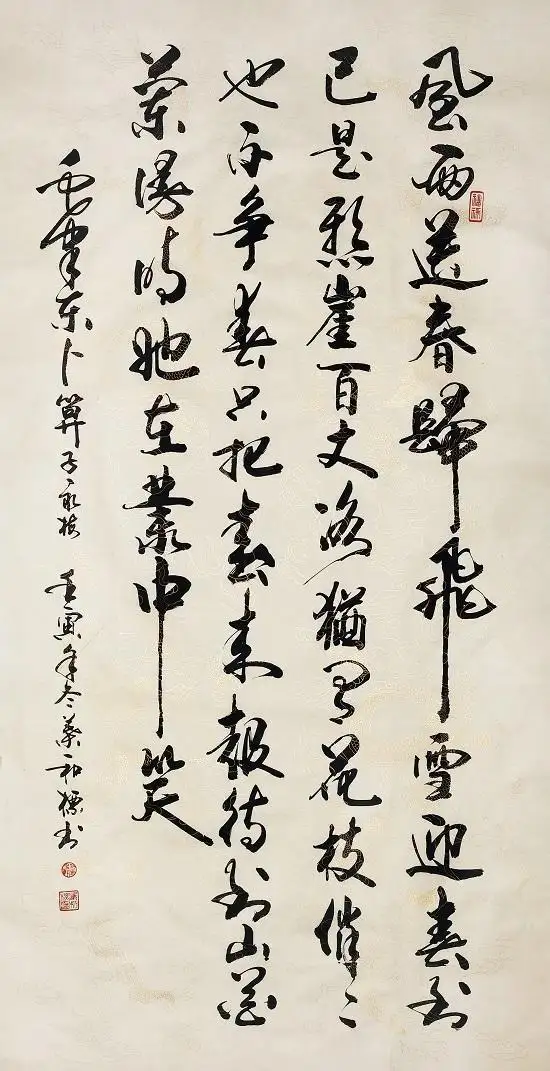 風雨送春歸飛雪迎春到
已是懸崖百丈冰猶有花枝俏〻
也不争春只把春来報待到山花
蘭漫时她在叢中笑
毛澤东卜算子詠梅 壬寅年冬葉和標书